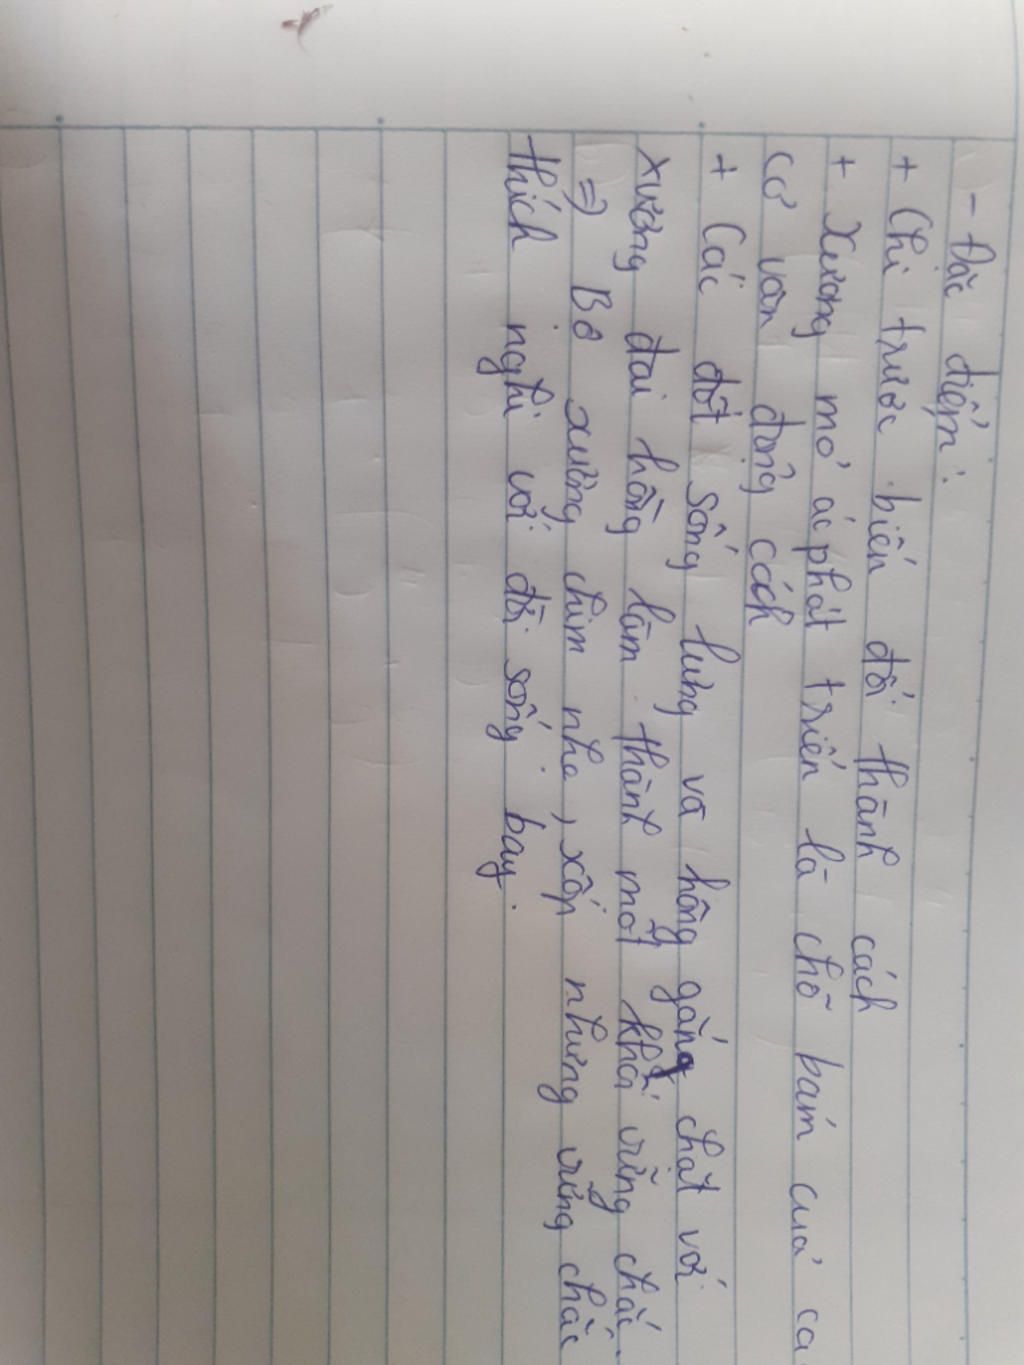 - Đặc điểm:
+ Chi trước biến đổi thành cách
+ Xương mỏ ác phát triển là chỗ bám của
cơ vận động cách
+ Các đốt sống lưng và hông gắng chặt với
xương đai hông làm thành một khối vững chắc.
=> Bộ xương chim nhẹ, xốp nhưng vững chắc
thích nghi với đời sống bay.